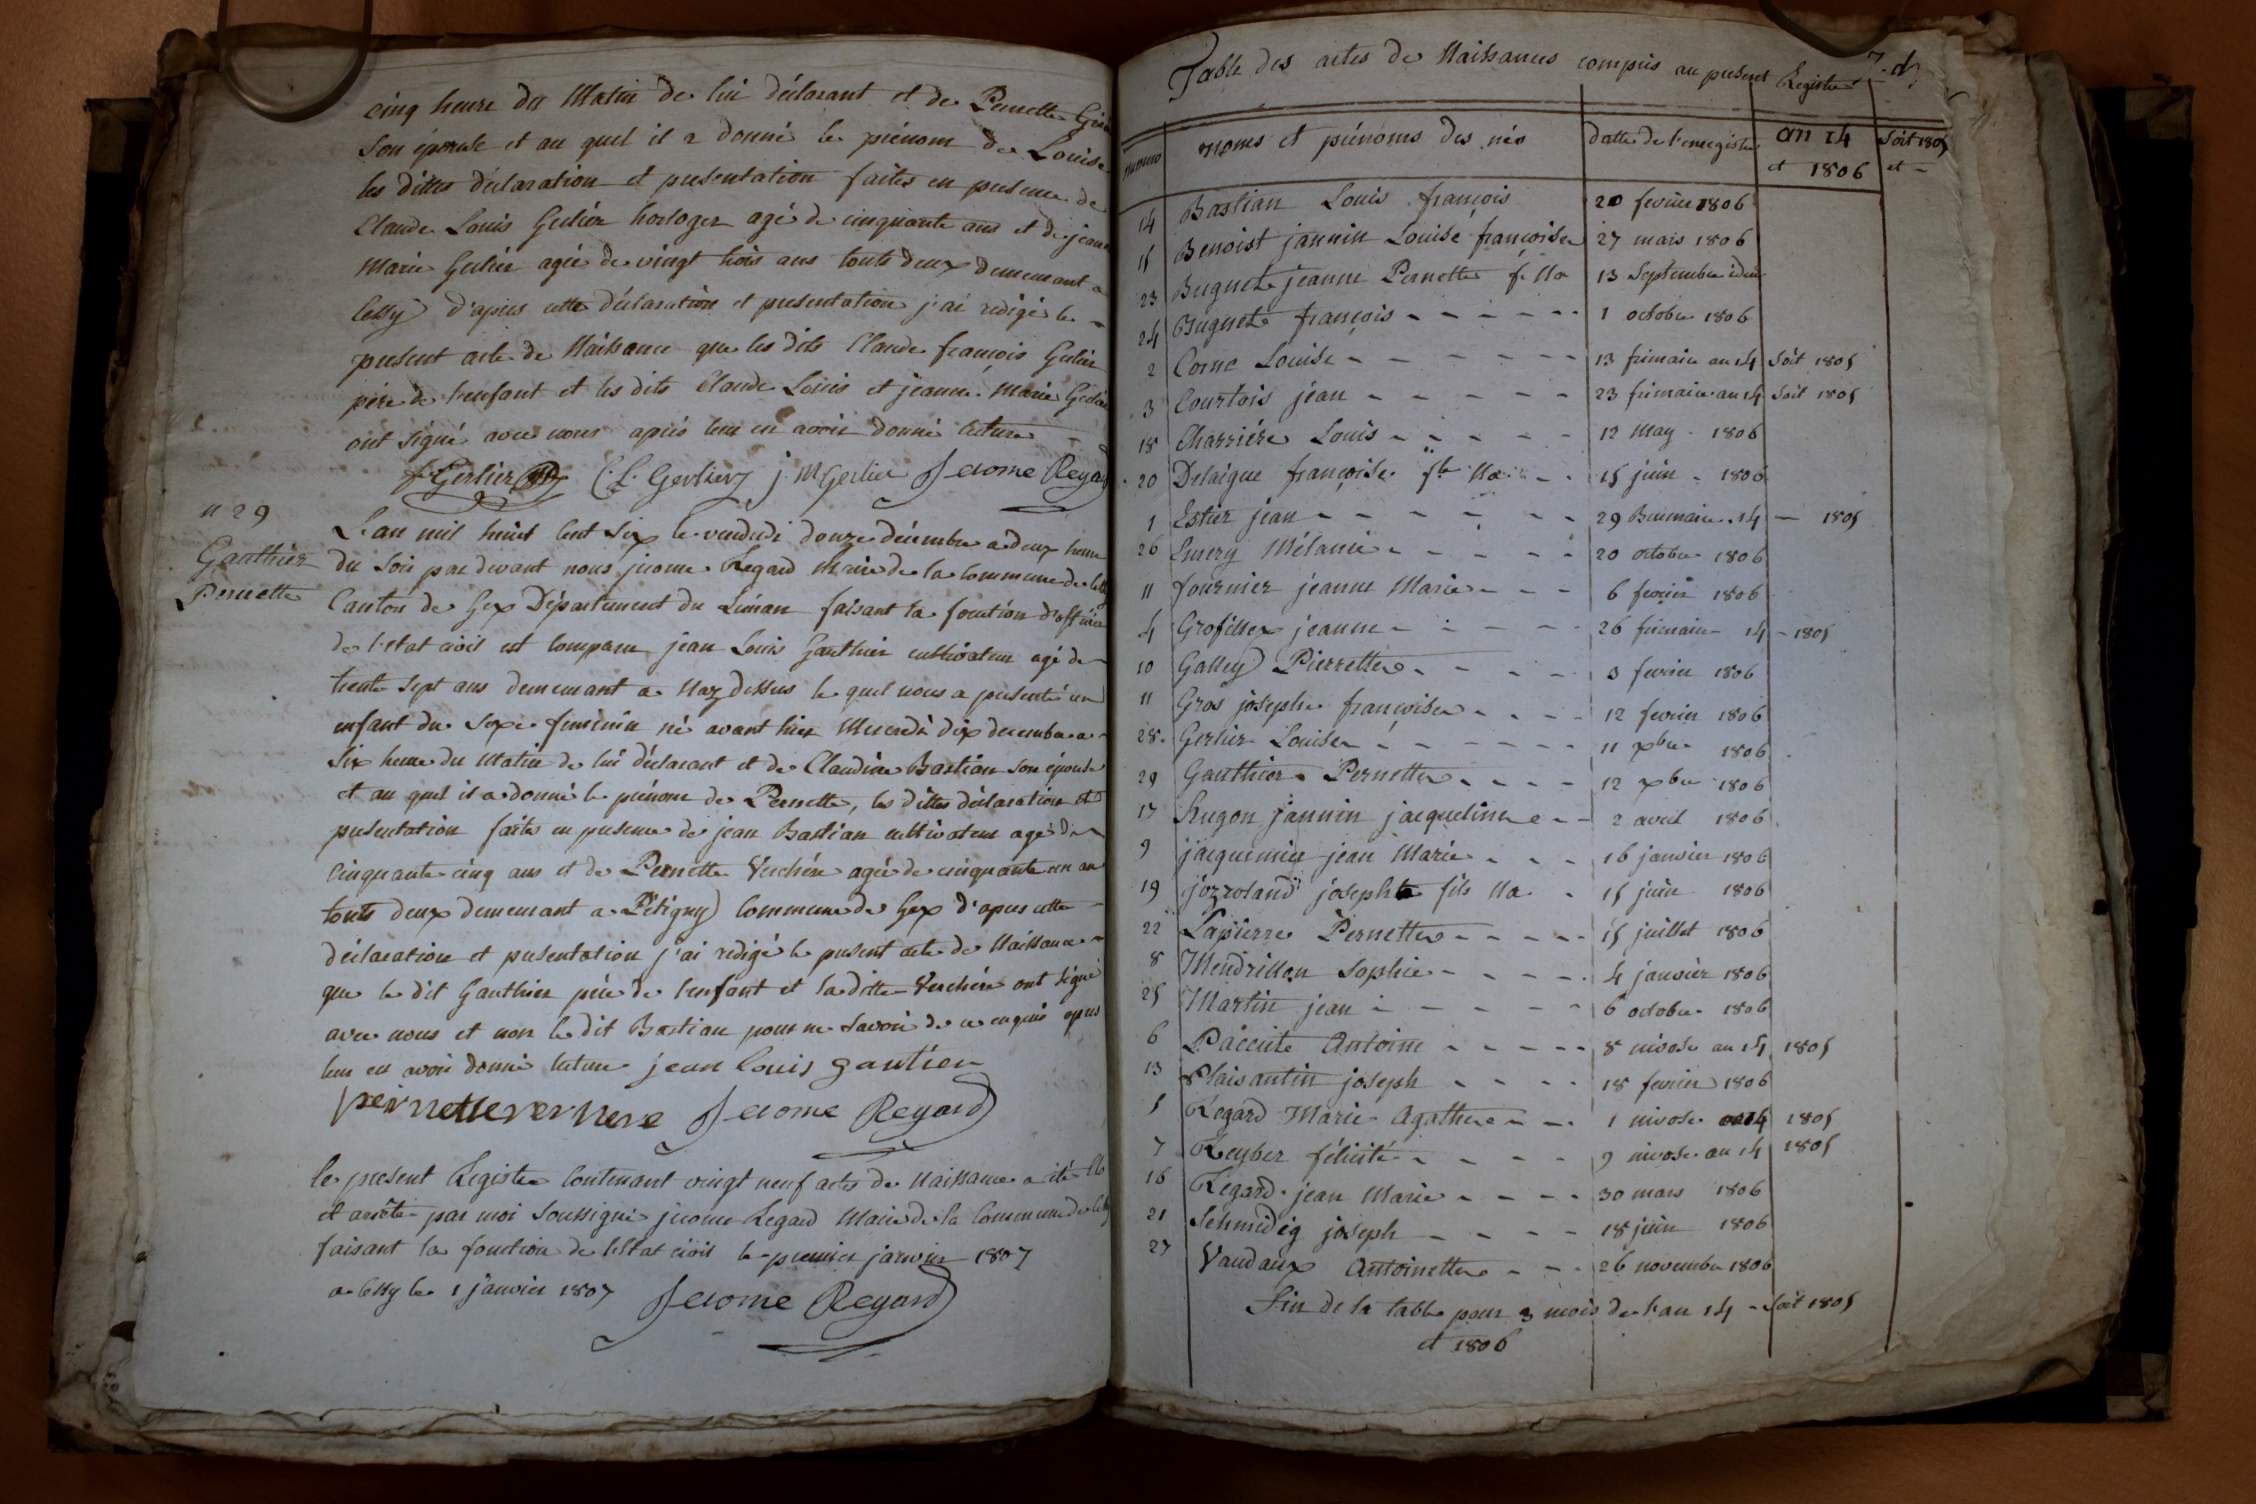 cinq heure du Matin de lui déclarant et de Pernette
son épouse et au quel il a donné le prénom de Louise
les dittes déclaration et presentation faites en presence de
Claude Louis Gerlier horloger agé de cinquante ans et de jeanne
Marie Gerlier agée de vingt trois ans touts deux demeurant a
Cessy d'apres cette déclaration et presentation j'ai redigé le
present acte de Naissance que les dits Claude françois Gerlier
père de l'enfant et les dits Claude Louis et jeanne Marie Gerlier
ont signé avec nous après leur en avoir donné lecture
f Gerlier C. L. Gerlier j. M Gerlier Jerome Regard
n 29
Gauthier
Pernette
L'an mil huit Cent Six le vendredi douze décembre a deux heure
du Soir par devant nous jrome Regard Maire de la Commune de Cessy
Canton de Gex Département du Léman faisant la fonction d'officier
de l'etat civil est comparu jean Louis Gauthier cultivateur agé de
trente sept ans demeurant a Naz dessus le quel nous a presenté un
enfant du Sexe feminin né avant hier Mercredi dix decembre a
Six heure du Matin de lui déclarant et de Claudine Bastian son épouse
et au quel il a donné le prénom de Pernette, les dittes déclaration et
presentation faites en presence de jean Bastian cultivateur agé de
cinquante cinq ans et de Pernette Verchère agée de cinquante un an
touts deux demeurant a Pitigny Commune de Gex d'apres cette
déclaration et presentation j'ai redigé le present acte de Naissance
que le dit Gauthier père de l'enfant et la ditte Verchère ont signé
avec nous et non le dit Bastian pour ne Savoir de ce enquis apres
leur en avoir donné lecture jean louis gautier
pernette verhere Jerome Regard
le present Registre Contenant vingt neuf actes de Naissance a été Clo
et arrété par moi Soussigné jrome Regard Maire de la Commune de Cessy
faisant la fonction de l'Etat civil le premier janvier 1807
a Cessy le 1 janvier 1807 Jerome Regard
Table des actes de Naissances compris au present Registre
numero noms et prénoms des nés datte de l'enregistre an 14 soit 1805
et 1806 et -
14 Bastian Louis françois 20 fevrier 1806
15 Benoist jannin Louise françoise 27 mars 1806
23 Buguet jeanne Pernette f. Na 13 Septembre idem
24 Buguet françois 1 octobre 1806
2 Corne Louise 13 frimaire an 14 soit 1805
3 Courtois jean 23 frimaire an 14 soit 1805
18 Charrière Louis 12 May 1806
20 Delaigue françoise fle Na 15 juin 1806
1 Estier jean 29 Brumaire 14 - 1805
26 Emery Mélanie 20 octobre 1806
11 fournier jeanne Marie 6 fevrier 1806
4 Grofillex jeanne 26 frimaire 14 - 1805
10 Galley Pierrette 3 fevrier 1806
11 Gros josephe françoise 12 fevrier 1806
28 Gerlier Louise 11 xbre 1806
29 Gauthier Pernette 12 xbre 1806
17 hugon jannin jacqueline 2 avril 1806
9 jacquemier jean Marie 16 janvier 1806
19 jozroland joseph fils Na 15 juin 1806
22 Lapierre Pernette 15 juillet 1806
8 Mendrillon Sophie 4 janvier 1806
25 Martin jean 6 octobre 1806
6 Paccite Antoine 8 nivose an 14 1805
13 Plaisantin joseph 18 fevrier 1806
5 Regard Marie Agathe 1 nivose an 14 1805
7 Reyber félicité 9 nivose an 14 1805
16 Regard jean Marie 30 mars 1806
21 Schmidig joseph 18 juin 1806
27 Vaudaux Antoinette 26 novembre 1806
Fin de la table pour 3 mois de l'an 14 - soit 1805
et 1806